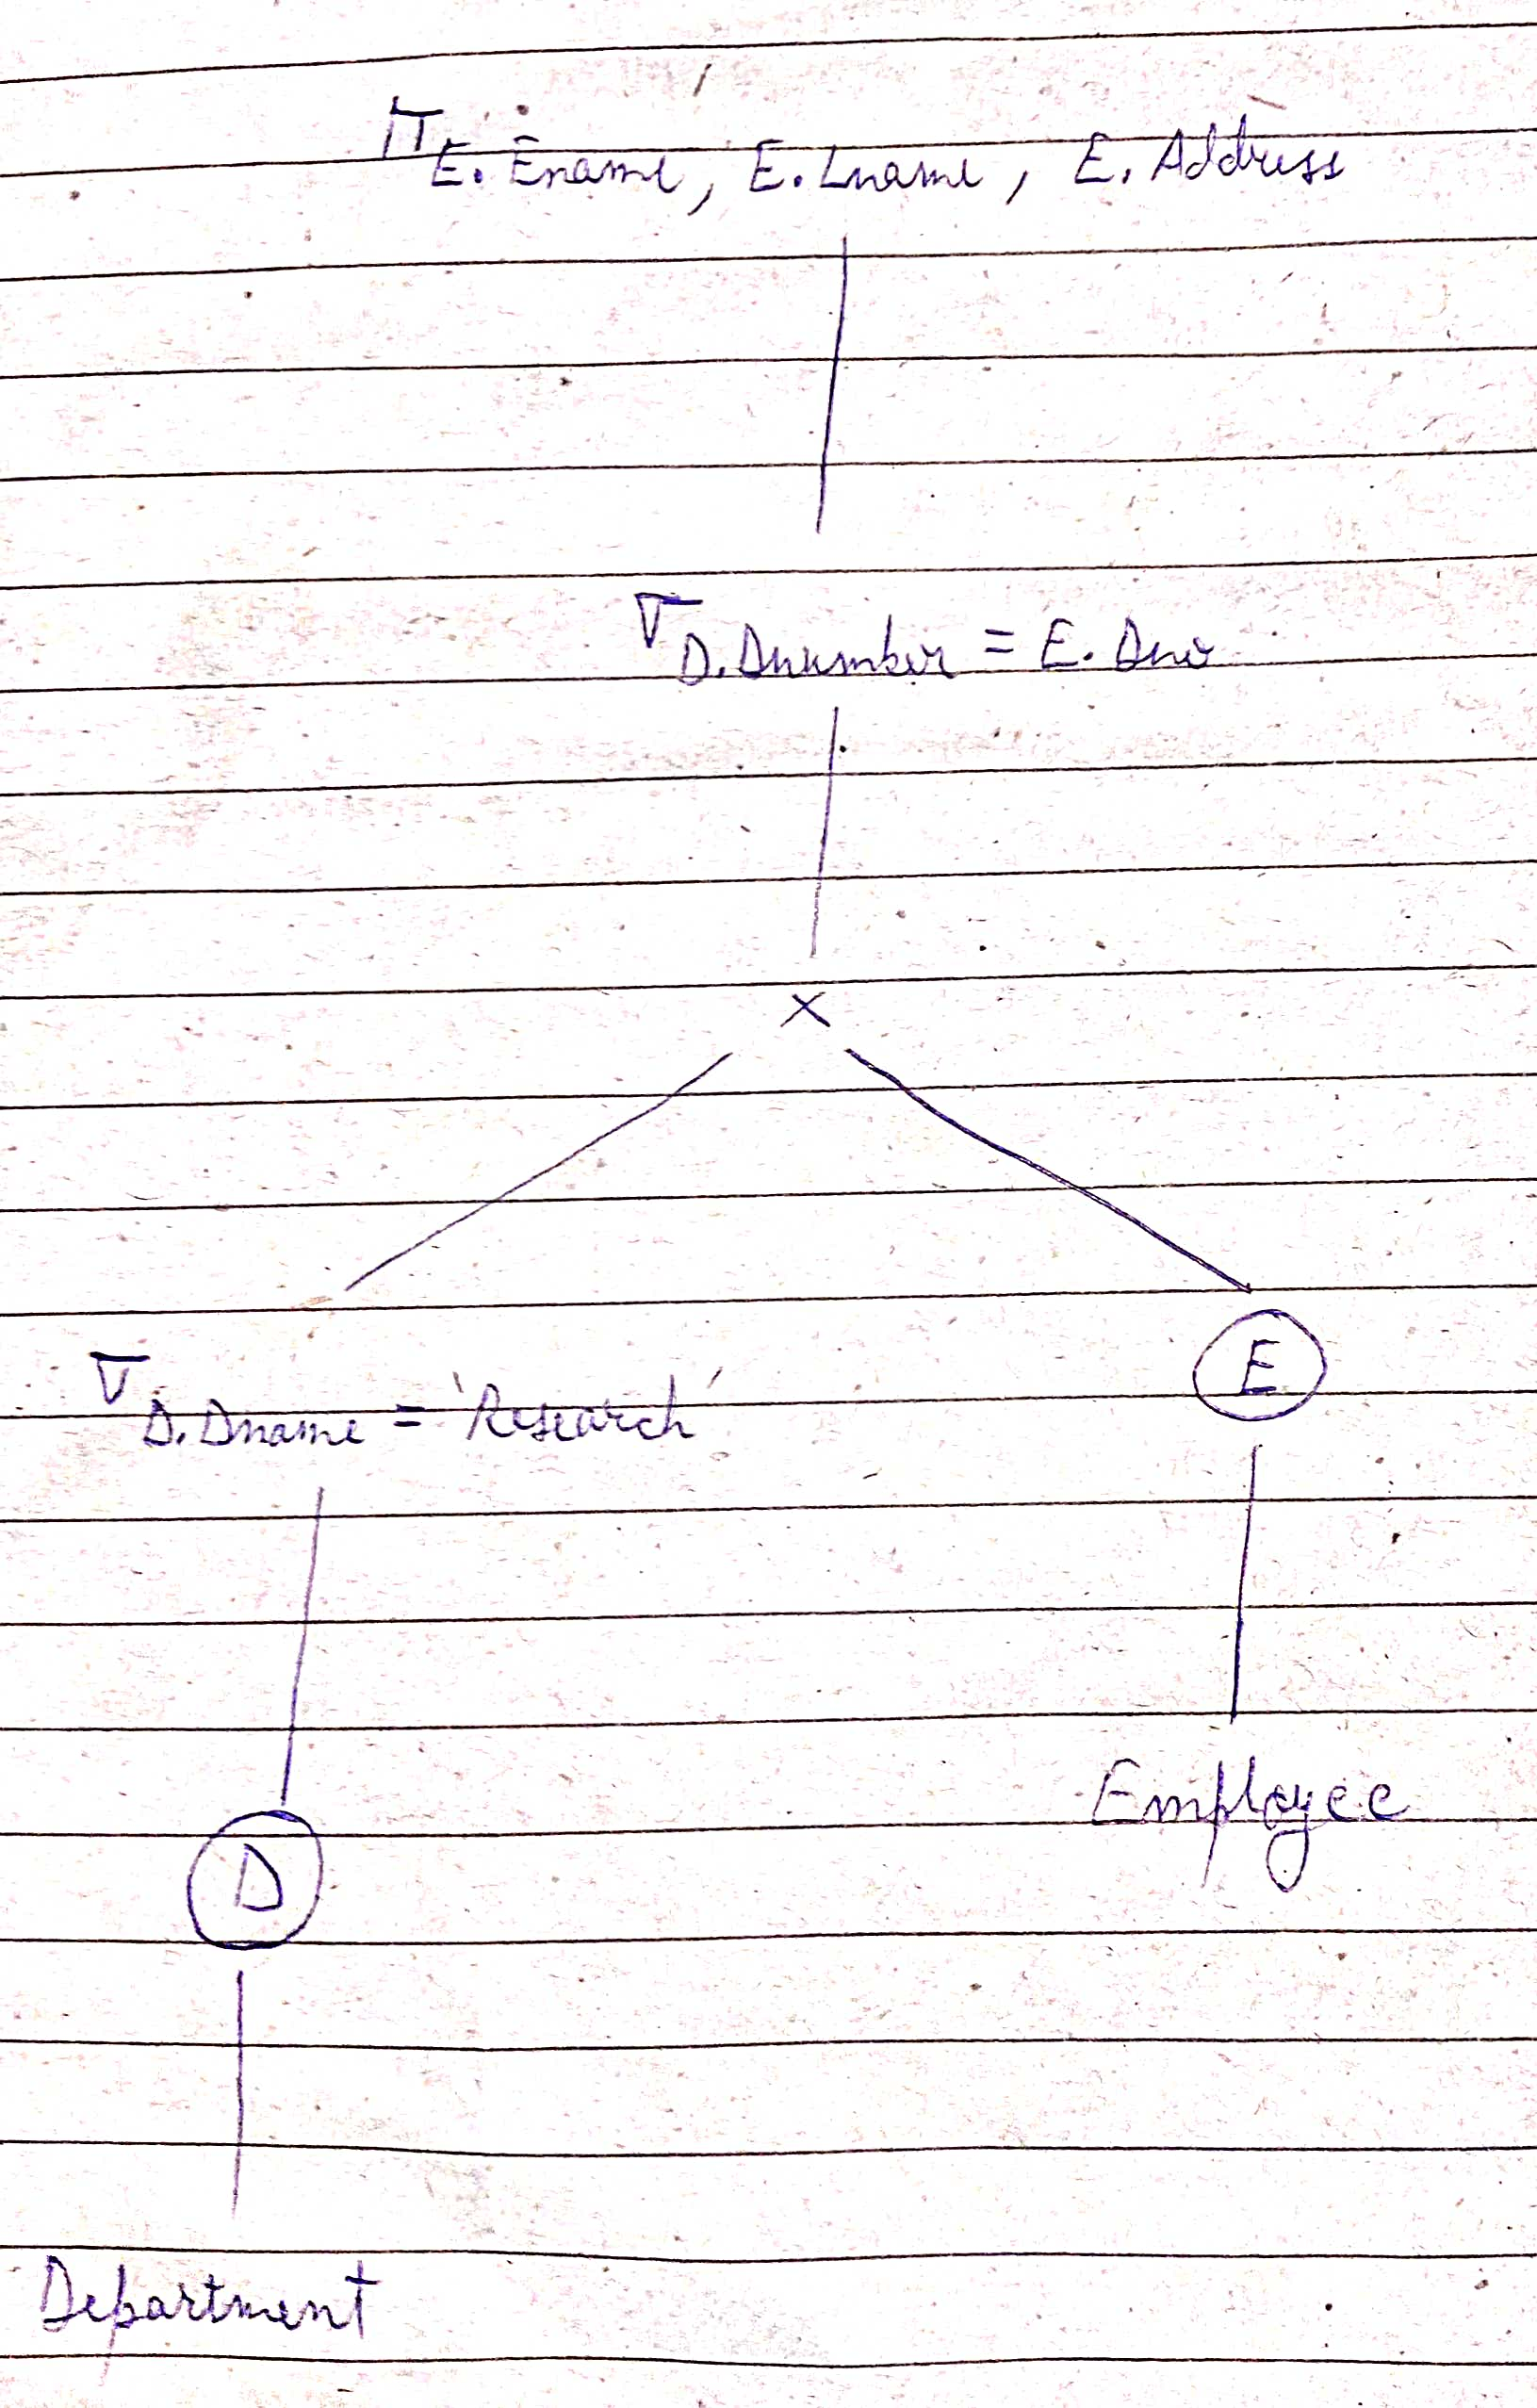 π E. Ename, E. Lname, E. Address
σ D. Dnumber = E. Dno
×
σ D. Dname = 'Research'
E
Employee
D
Department